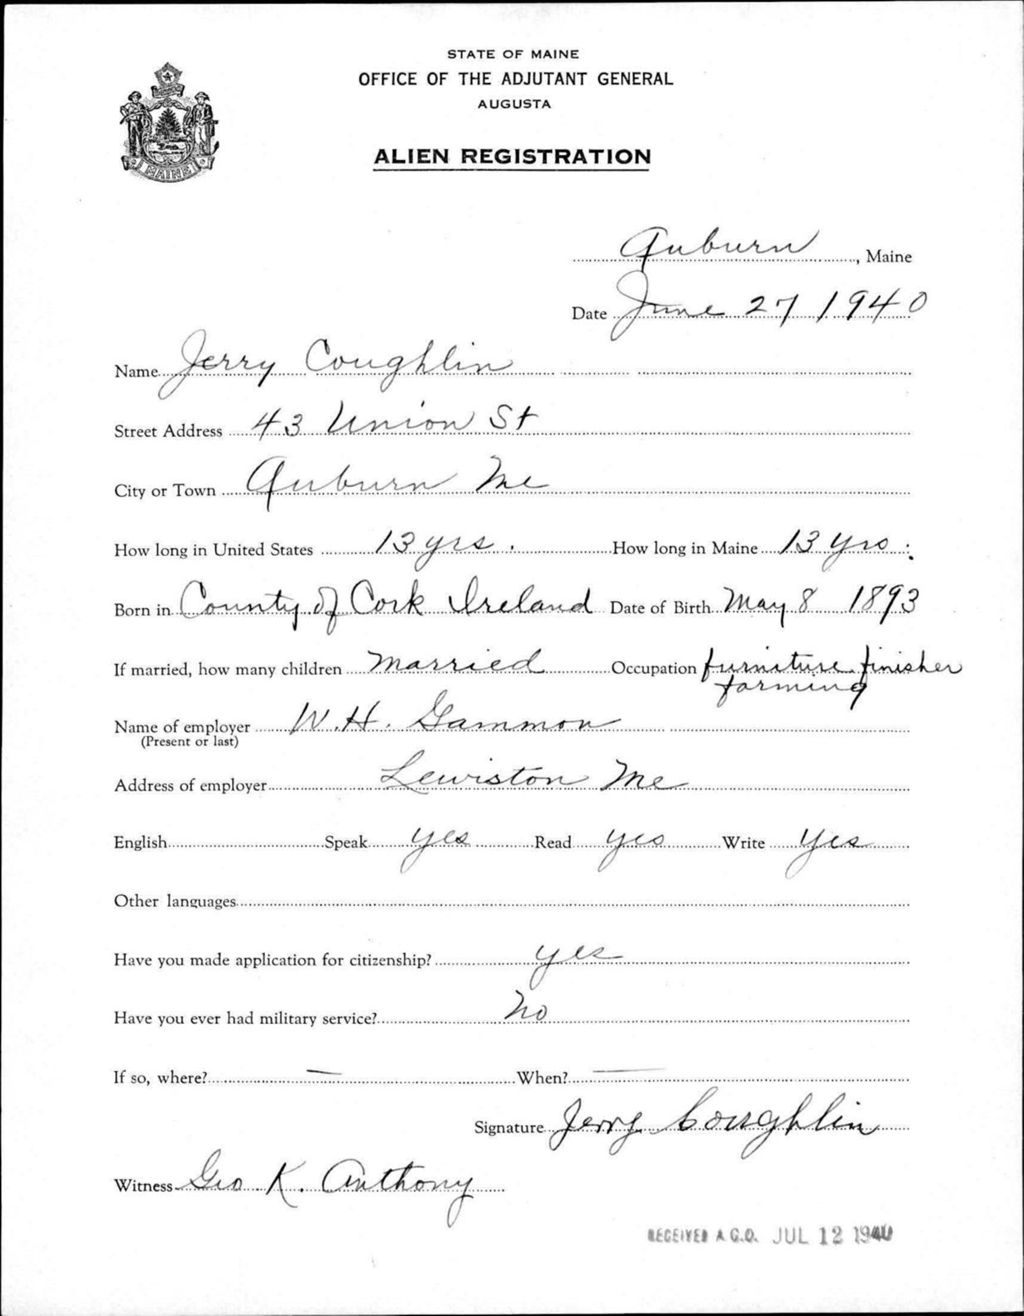 STATE OF MAINE
OFFICE OF THE ADJUTANT GENERAL
AUGUSTA
ALIEN REGISTRATION
MAINE
Auburn, Maine
Date June 27 1940
Name Jerry Coughlin
Street Address 43 Union St
City or Town Auburn Me
How long in United States 13 yrs. How long in Maine 13 yrs.
Born in County of Cork Ireland Date of Birth May 8 1893
If married, how many children married Occupation furniture finisher
farming
Name of employer W. H. Gammon
(Present or last)
Address of employer Lewiston Me
English Speak yes Read yes Write yes
Other languages
Have you made application for citizenship? yes
Have you ever had military service? No
If so, where? — When? —
Signature Jerry Coughlin
Witness Geo K. Anthony
RECEIVED A.G.O. JUL 12 1940